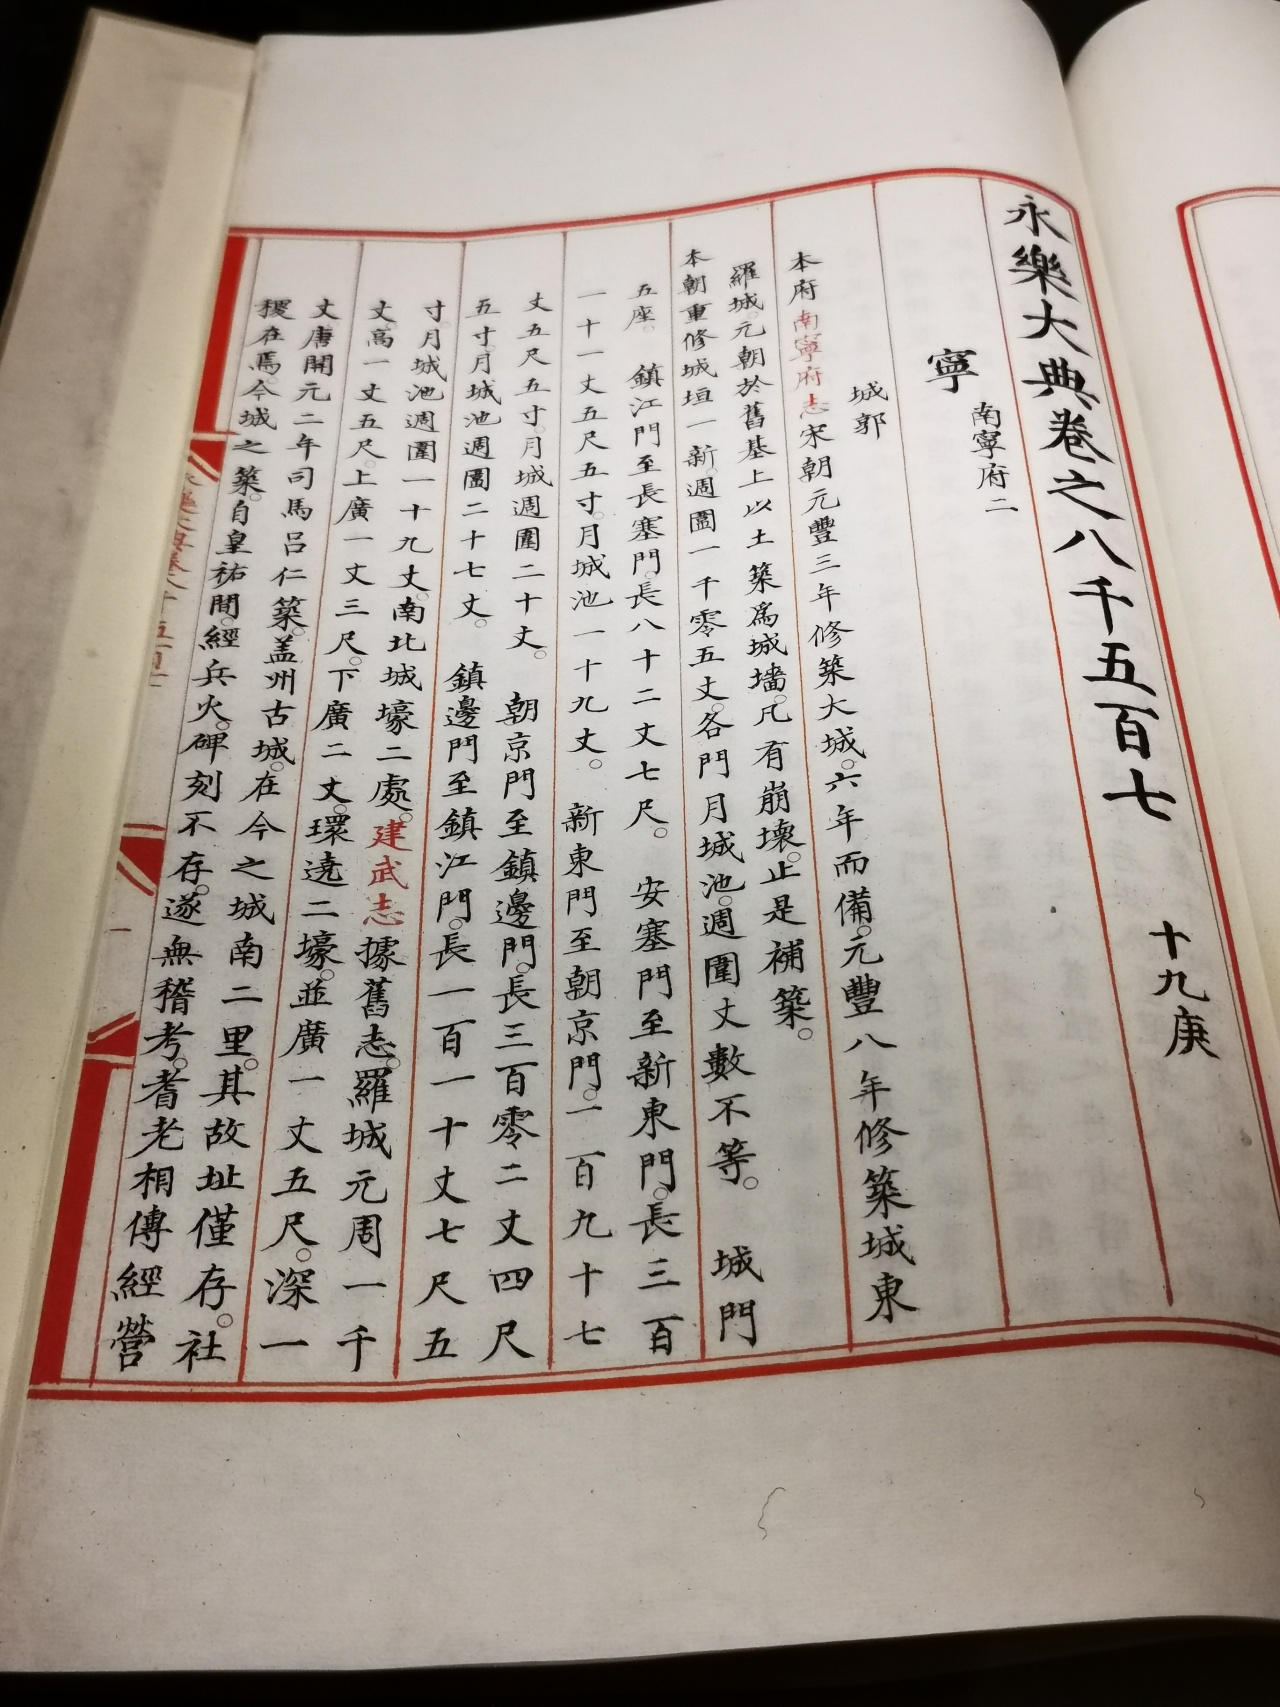 永樂大典卷之八千五百七 十九庚
寧 南寧府二
城郭
本府南寧府志宋朝元豐三年修築大城。六年而備。元豐八年修築城東
羅城。元朝於舊基上以土築爲城墻。凡有崩壞。止是補築。
本朝重修城垣一新。週圍一千零五丈。各門月城池。週圍丈數不等。 城門
五座。 鎮江門至長塞門。長八十二丈七尺。 安塞門至新東門。長三百
一十一丈五尺五寸。月城池一十九丈。 新東門至朝京門。一百九十七
丈五尺五寸。月城週圍二十丈。 朝京門至鎮邊門。長三百零二丈四尺
五寸。月城池週圍二十七丈。 鎮邊門至鎮江門。長一百一十丈七尺五
寸。月城池週圍一十九丈。南北城壕二處。建武志據舊志。羅城元周一千
丈。高一丈五尺。上廣一丈三尺。下廣二丈。環遶二壕。並廣一丈五尺。深一
丈。唐開元二年司馬呂仁築。盖州古城。在今之城南二里。其故址僅存。社
稷在焉。今城之築。自皇祐間。經兵火。碑刻不存。遂無稽考。耆老相傳經營